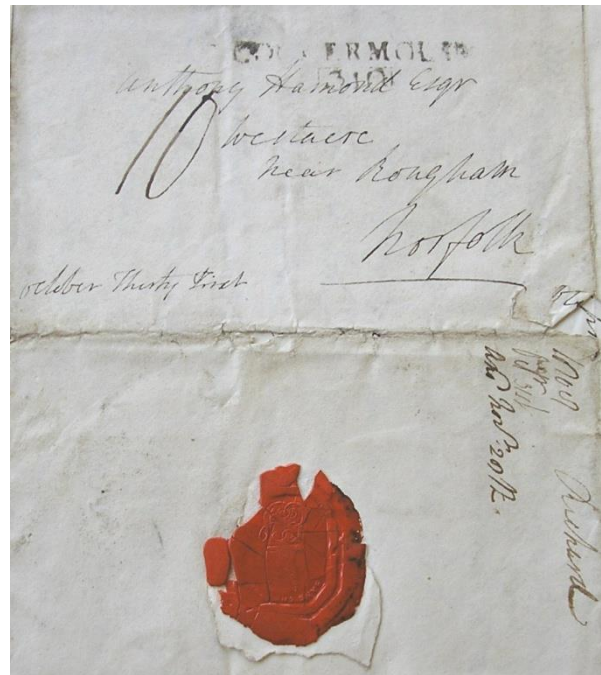 COCKERMOUTH
310
Anthony Hamond Esqr
10
Westacre
near Rougham
Norfolk
October Thirty First
1809
Richard